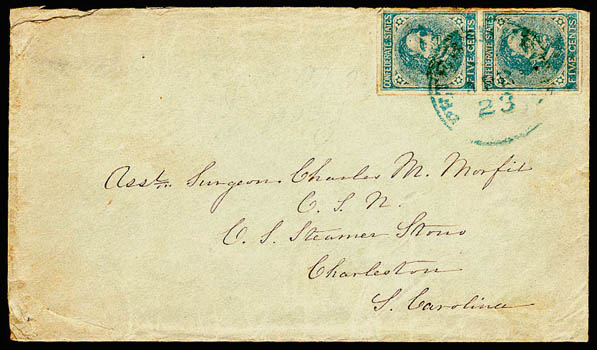 CONFEDERATE STATES
FIVE CENTS
CONFEDERATE STATES
FIVE CENTS
23
Asst. Surgeon. Charles M. Morfit
C. S. N.
C. S. Steamer Stono
Charleston
S. Carolina